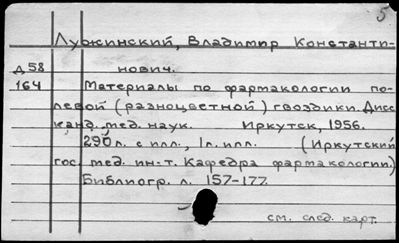 5
Лужинский, Владимир Константи-
Д58 нович.
164 Материалы по фармакологии по-
левой (разноцветной) гвоздики. Дисс.
канд. мед. наук. Иркутск, 1956.
290 л. с илл., 1 л. илл. (Иркутский
гос. мед. ин-т. Кафедра фармакологии)
Библиогр. л. 157-177.
см. след. карт.